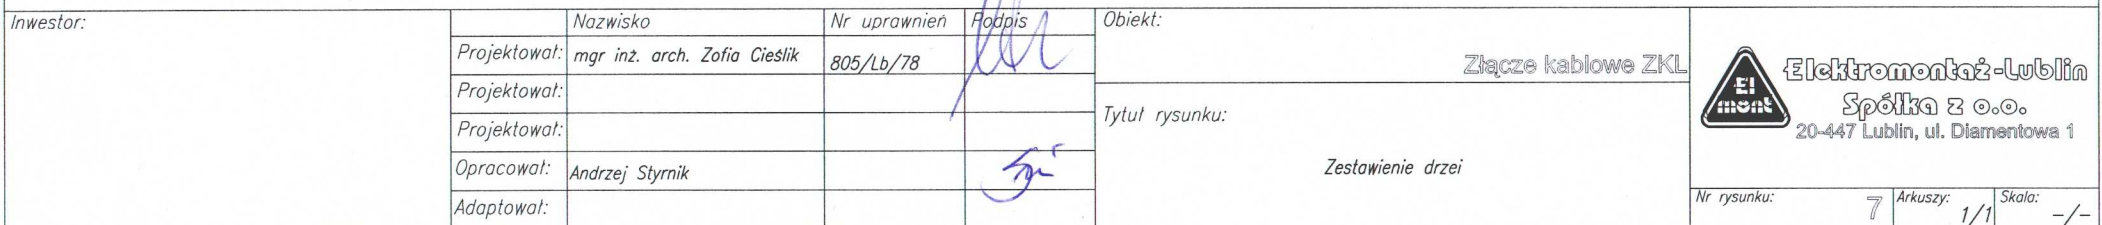 Inwestor:
Nazwisko
Nr uprawnień
Podpis
Projektował:
mgr inż. arch. Zofia Cieślik
805/Lb/78
Projektował:
Projektował:
Opracował:
Andrzej Styrnik
Adaptował:
Obiekt:
Złącze kablowe ZKL
Tytuł rysunku:
Zestawienie drzei
El
mont
Elektromontaż-Lublin
Spółka z o.o.
20-447 Lublin, ul. Diamentowa 1
Nr rysunku:
7
Arkuszy:
1/1
Skala:
-/-